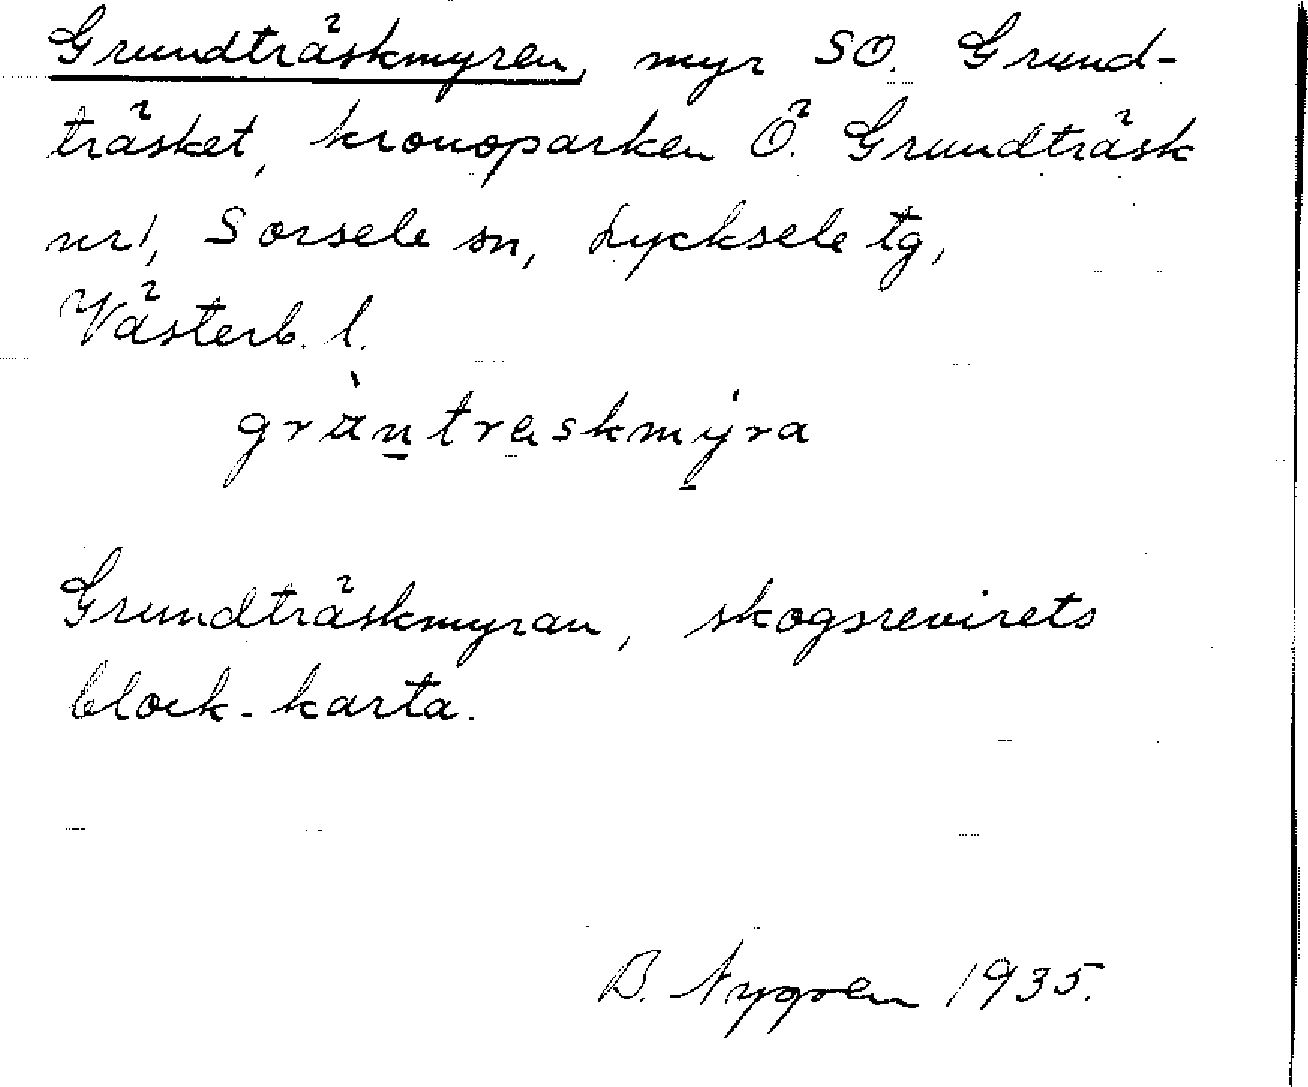 Grundträskmyren, myr SO. Grund-
träsket, kronoparken Ö. Grundträsk
nr 1, Sorsele sn, Lycksele tg,
Västerb. l.
grännträskmyra
Grundträskmyran, skogsrevirets
block-karta.
B. Nygren 1935.